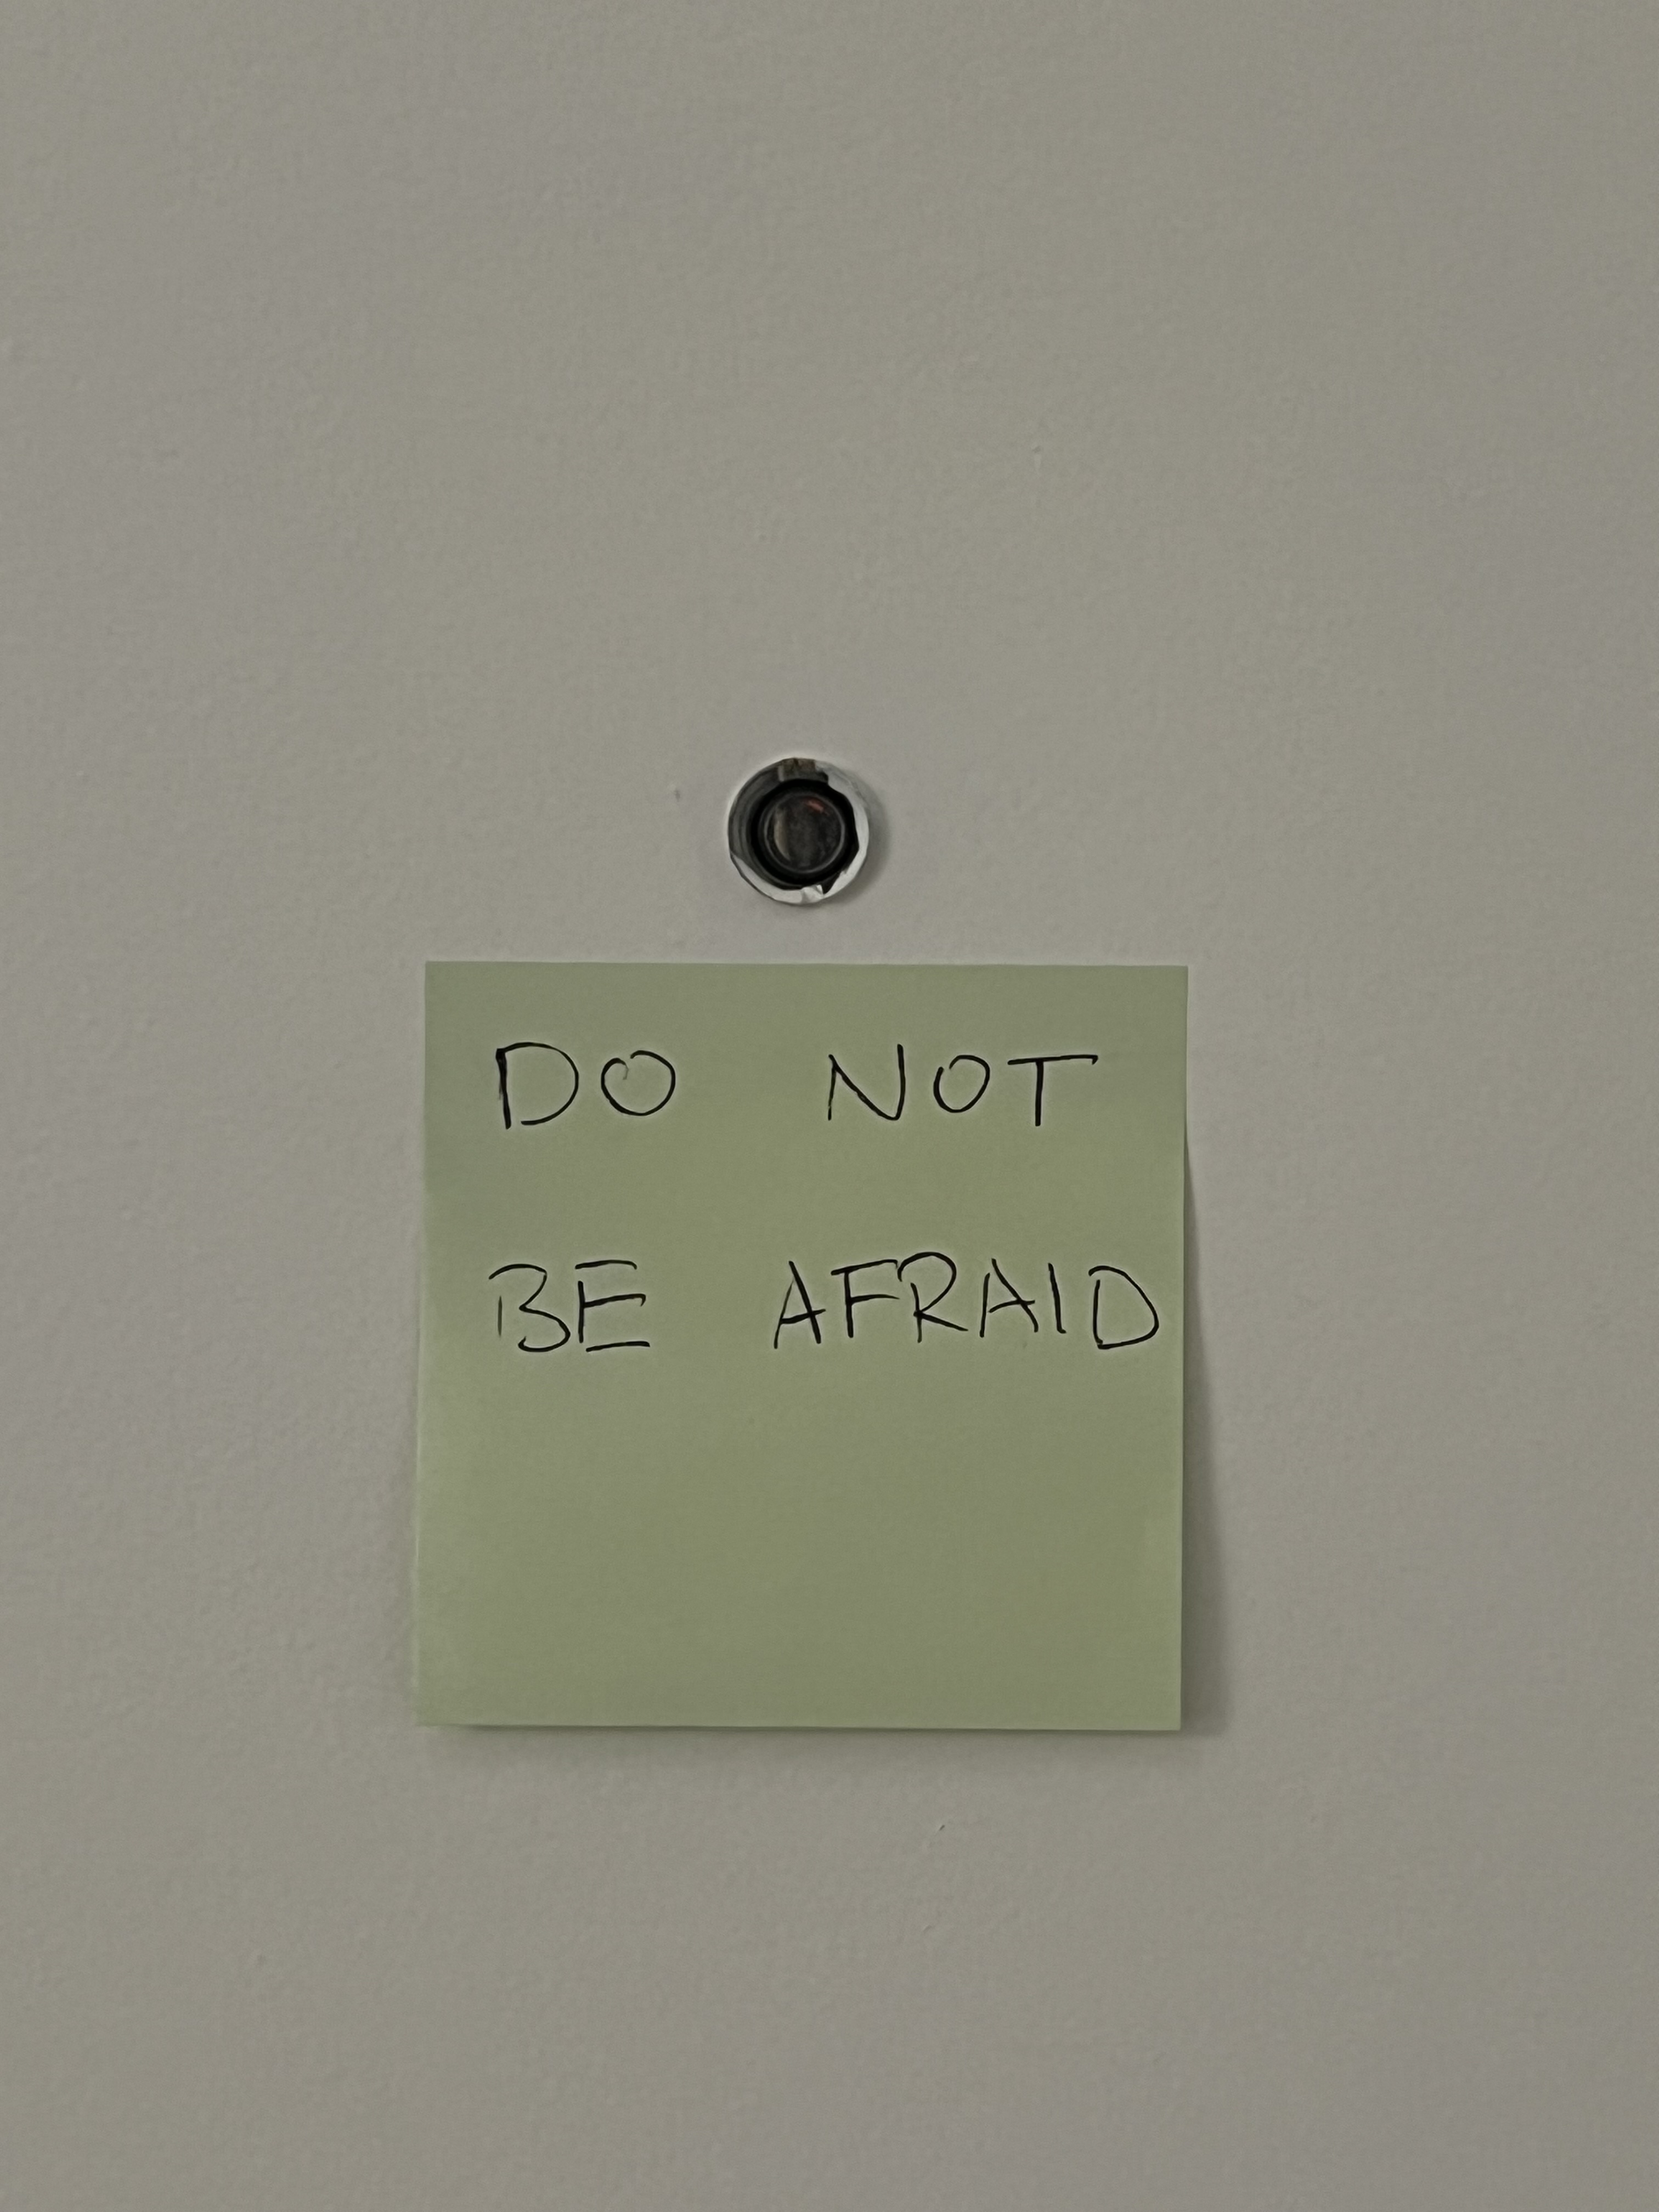 DO NOT
BE AFRAID